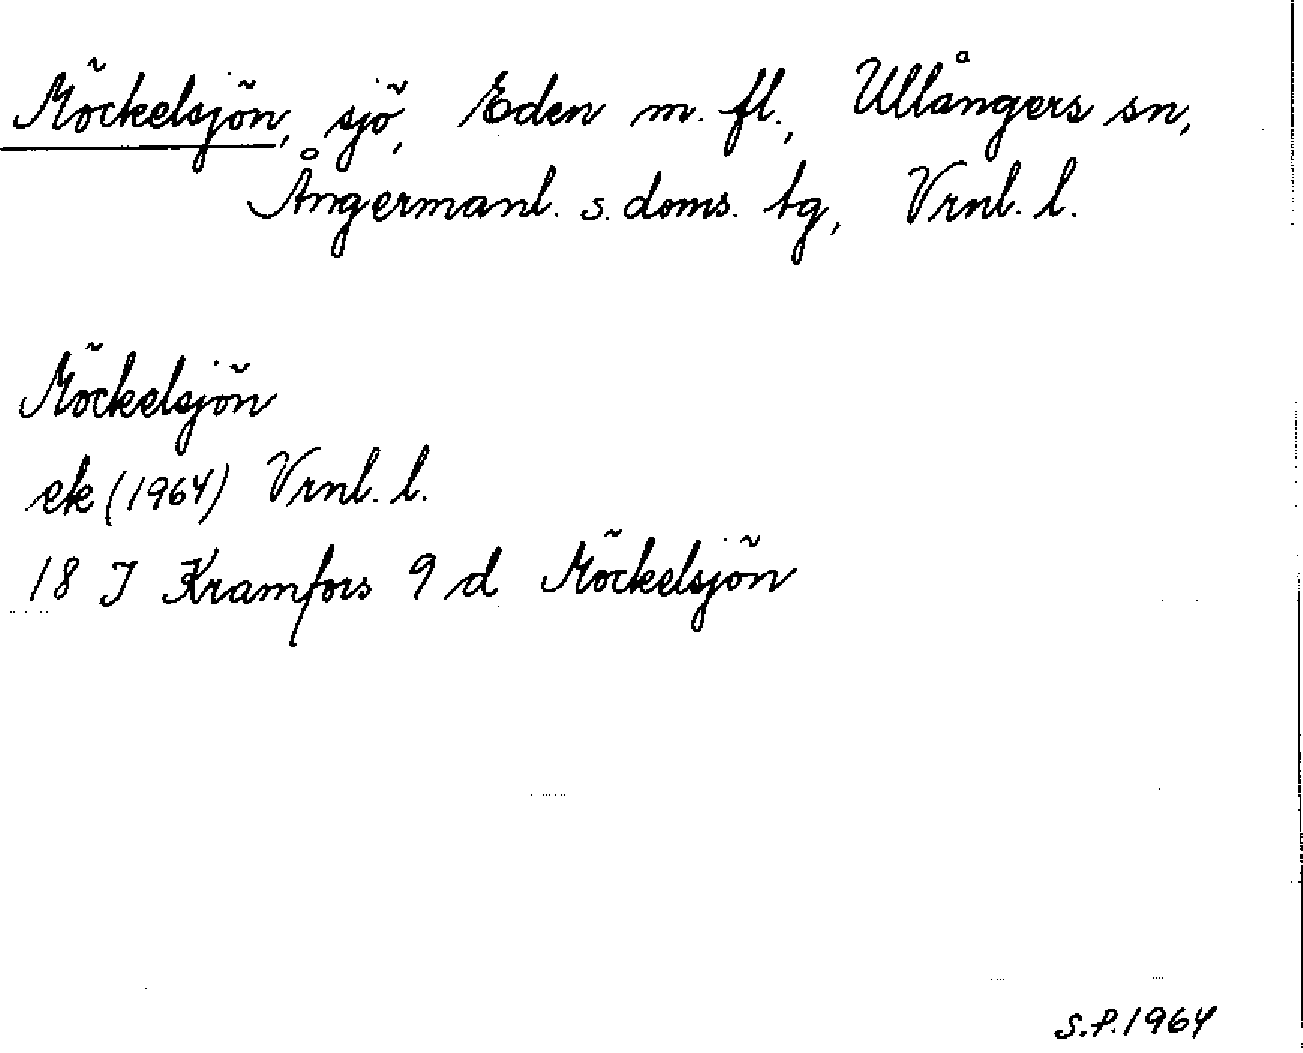 Möckelsjön, sjö, Eden m. fl., Ullångers sn,
Ångermanl. s. doms. tg, Vrnl. l.
Möckelsjön
ek (1964) Vrnl. l.
18 J Kramfors 9 d Möckelsjön
S.P. 1964